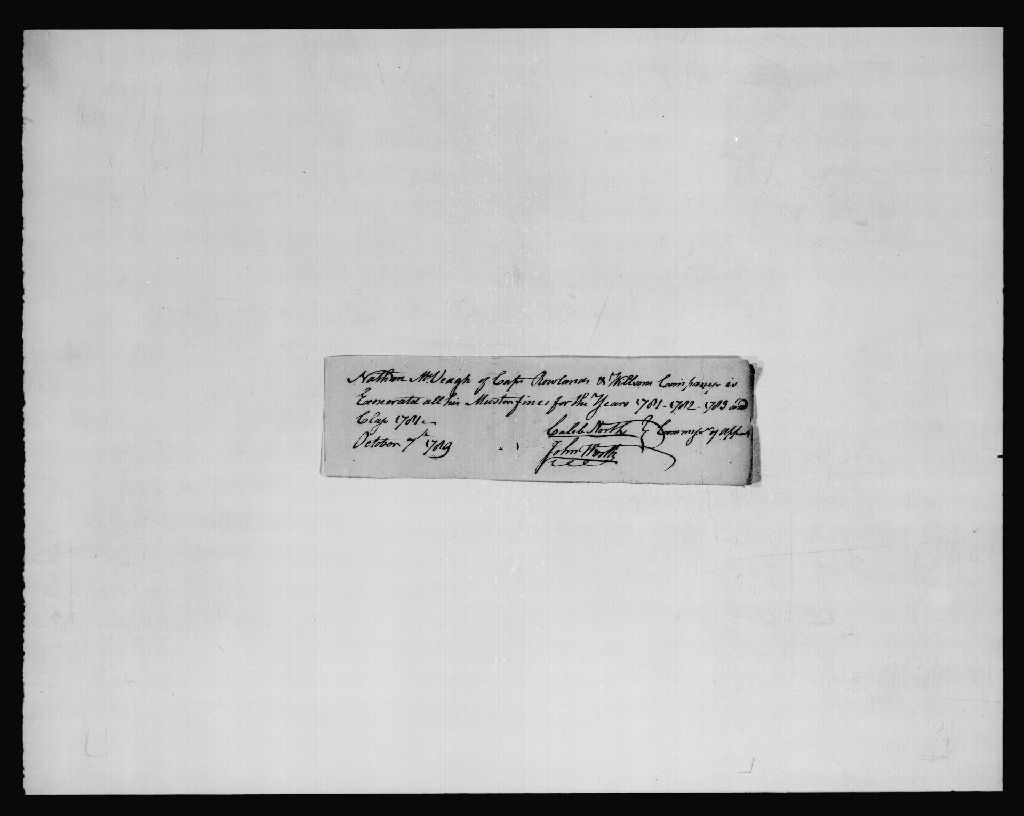 Nathan McVeagh of Capt. Rowlands & Willsons Companys is
Exonerated all his Muster fines for the Years 1781-1782-1783 and
Class 1781.
Caleb North Commisrs of Appeals
October 7th 1789
John Worth